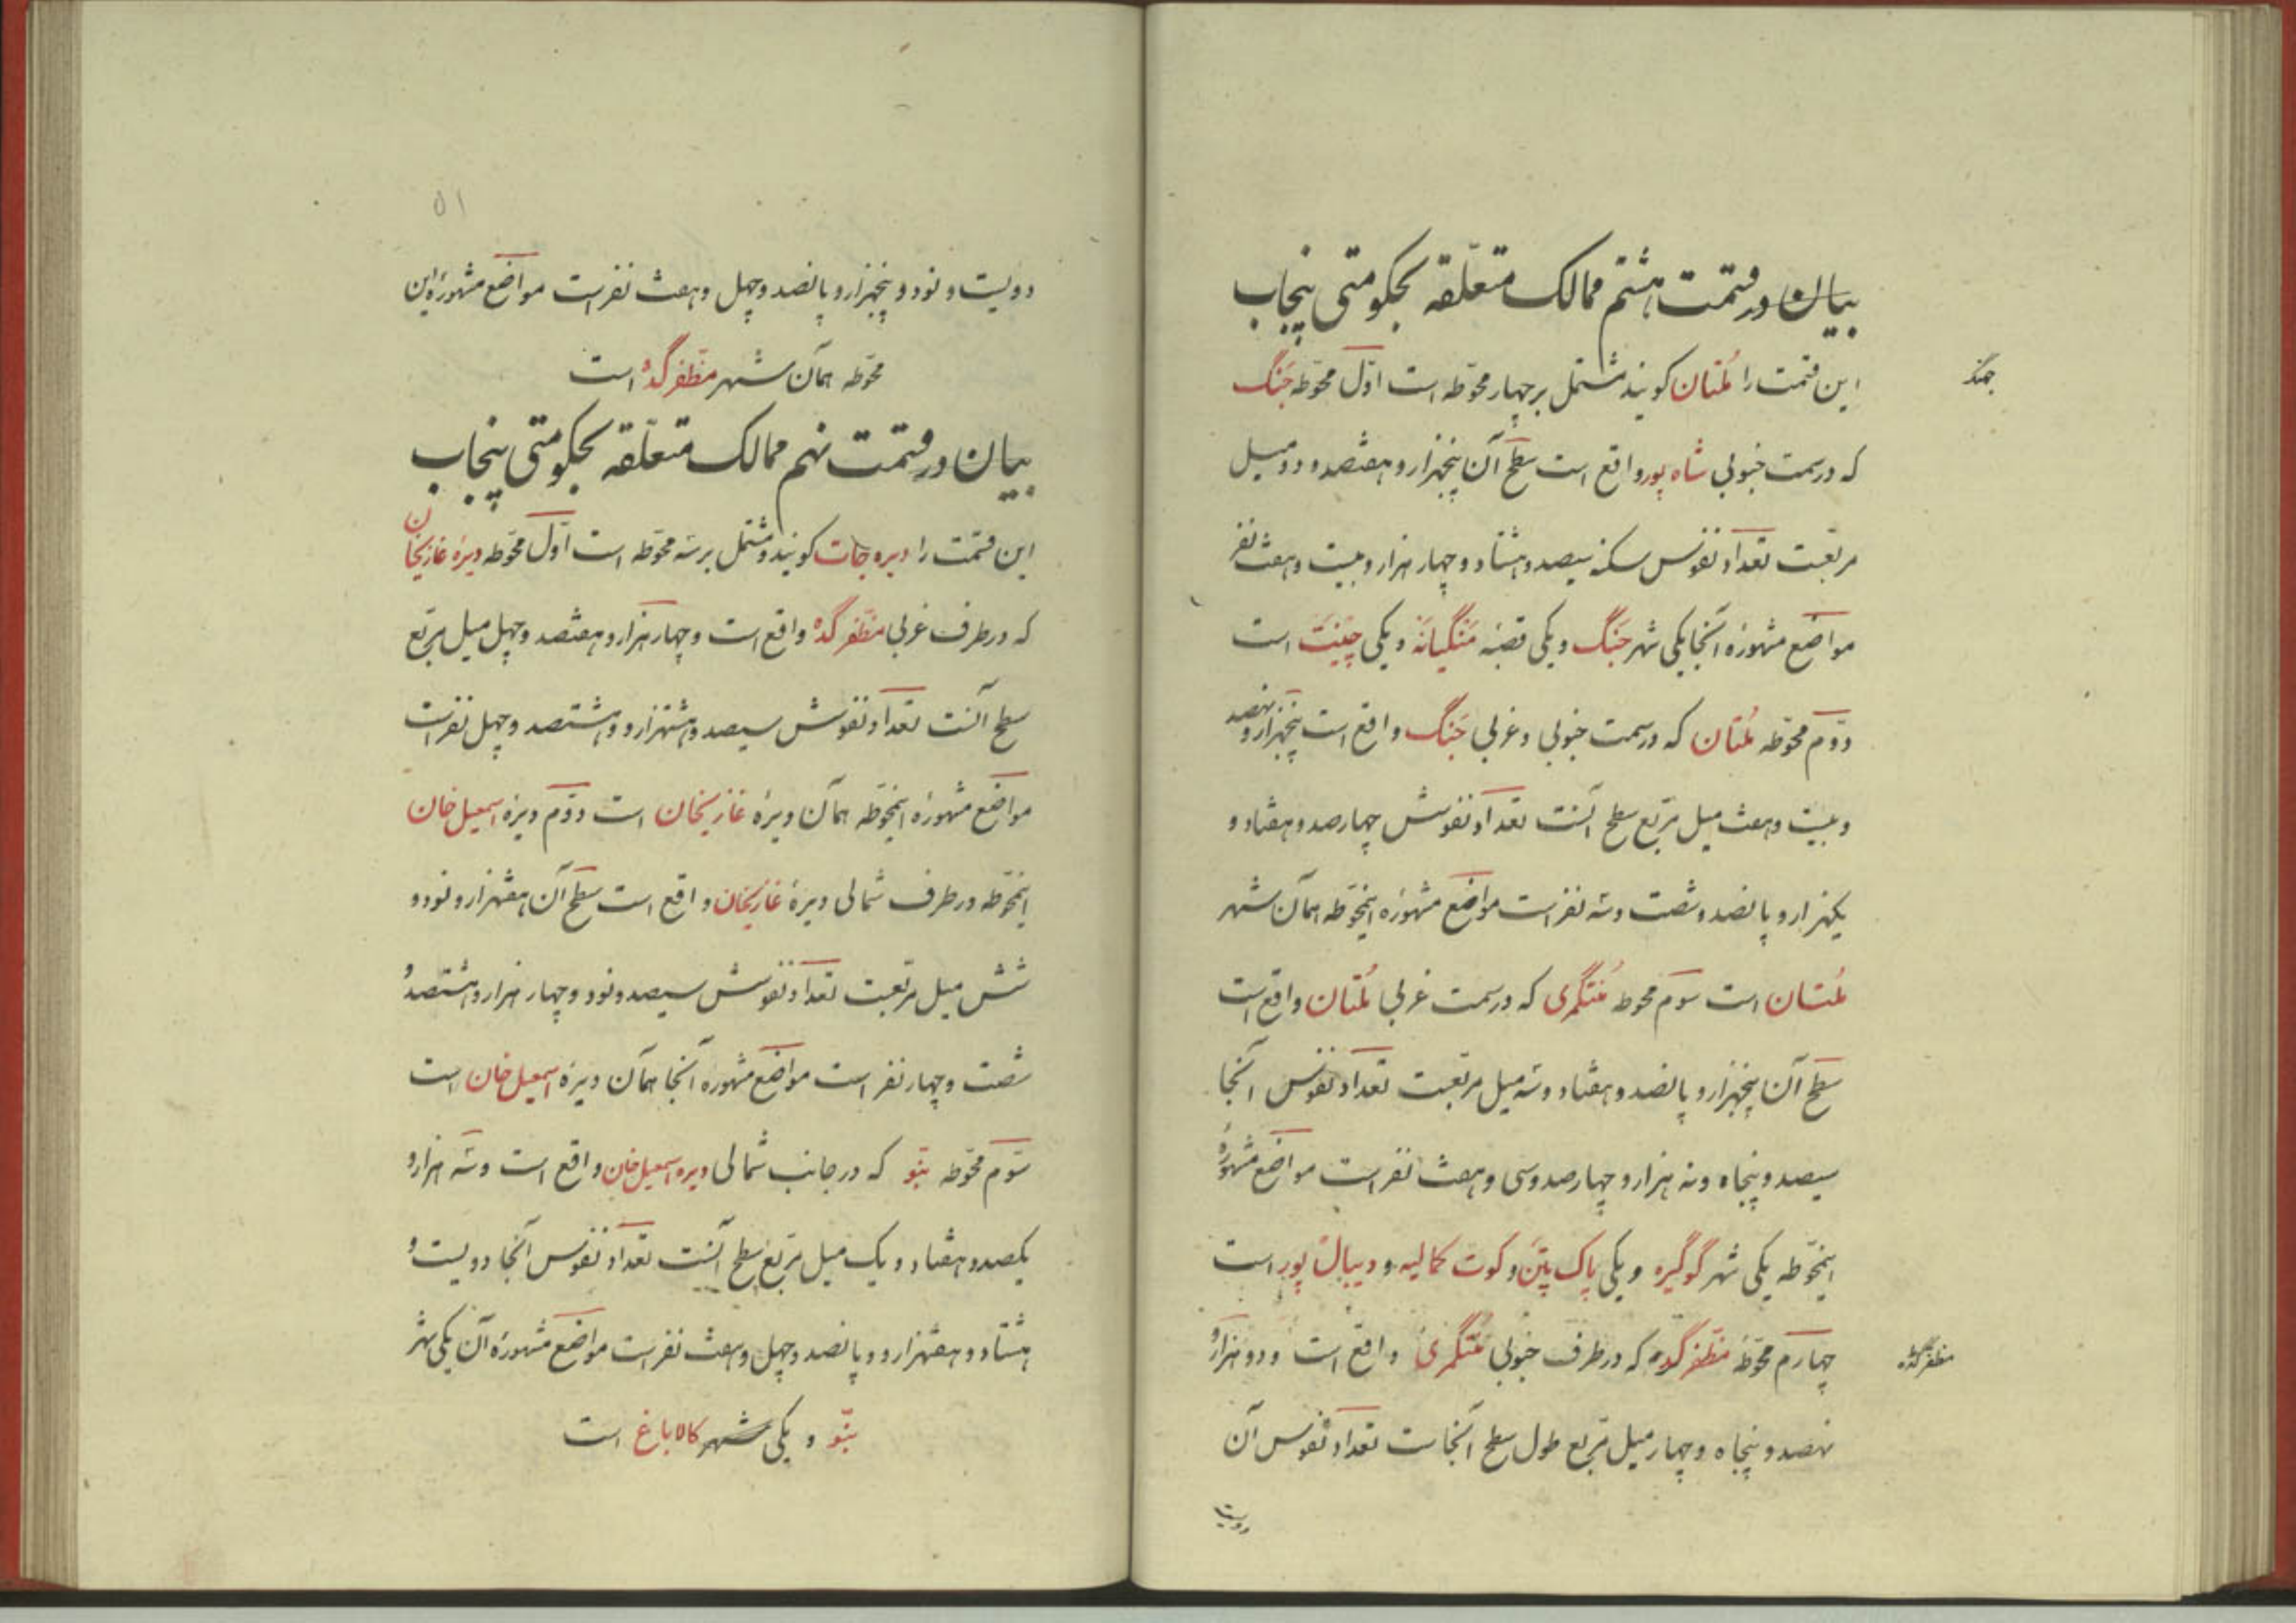 بیان در قسمت هشتم ممالک متعلّقه بحکومتی پنجاب
این قسمت را مُلتان کویند مشتمل بر چهار محوّطه است اوّل محوّطه جَنگ
جهنگ
که در سمت جنوبی شاه پور واقع است سطح آن پنجهزار و هفتصد و دو میل
مربّعست تعداد نفوس سکنه سیصد و هشتاد و چهار هزار و بیست و هفت نفر
مواضع مشهورۀ آنجا یکی شهر جَنگ و یکی قصبۀ مَنگیانَه و یکی چِینَت است
دوّم محوّطه مُلتان که در سمت جنوبی و غربی جَنگ واقع است پنجهزار و نهصد
و بیست و هفت میل مربّع سطح آنست تعداد نفوسش چهارصد و هفتاد و
یکهزار و پانصد و شصت و سه نفر است مواضع مشهورۀ اینمحوّطه همان شهر
مُلتان است سوّم محوطه مُنتگمری که در سمت غربی مُلتان واقع است
سطح آن پنجهزار و پانصد و هفتاد و سه میل مربّعست تعداد نفوس آنجا
سیصد و پنجاه و نه هزار و چهارصد و سی و هفت نفر است مواضع مشهورۀ
اینمحوّطه یکی شهر گوگیره و یکی پاک پتَن و کوت کمالیه و دیبال پور است
چهارم محوّطۀ مظفّر گده که در طرف جنوبی مُنتگمری واقع است و دو هزار و
مظفر گڈه
نهصد و پنجاه و چهار میل مربّع طول سطح آنجاست تعداد نفوس آن
دویست
۵۱
دویست و نود و پنجهزار و پانصد و چهل و هفت نفر است مواضع مشهورۀ این
محوّطه همان شهر مظّفر گده است
بیان در قسمت نهم ممالک متعلّقه بحکومتی پنجاب
این قسمت را دیره جات کویند و مشتمل بر سه محوّطه است اوّل محوّطه دیرۀ غازیخان
که در طرف غربی مظفّر گده واقع است و چهار هزار و هفتصد و چهل میل مربّع
سطح آنست تعداد نفوسش سیصد و هشتهزار و و هشتصد و چهل نفر است
مواضع مشهورۀ اینمحوّطه همان دیرۀ غازیخان است دوّم دیرۀ اسمعیل خان
اینمحوّطه در طرف شمالی دیرۀ غازیخان واقع است سطح آن هفتهزار و نود و
شش میل مربّعست تعداد نفوسش سیصد و نود و چهار هزار و هشتصد و
شصت و چهار نفر است مواضع مشهوره آنجا همان دیرۀ اسمعیل خان است
سوّم محوّطه بنّو که در جانب شمالی دیره اسمعیل خان واقع است و سه هزار و
یکصد و هفتاد و یک میل مربّع سطح آنست تعداد نفوس آنجا دویست و
هشتاد و هفتهزار و و پانصد و چهل و هفت نفر است مواضع مشهورۀ آن یکی شهر
بنّو و یکی شهر کالاباغ است